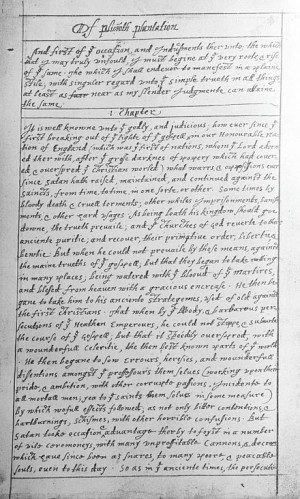 Of plimoth plantation.
And first of yͤ occasion, and Indusments ther unto; the which
that I may truly unfould, I must begine at yͤ very roote & rise
of yͤ same. The which I shall endevor to manefest in a plaine
stile; with singuler regard unto yͤ simple trueth in all things,
at least as far near as my slender Judgmente can attaine
the same.
1. Chapter
It is well knowne unto yͤ godly, and judicious; how ever since yͤ
first breaking out of yͤ lighte of yͤ gospell, in our Honourable Na-
tion of England (which was yͤ first of nations, whom yͤ Lord adorn-
ed ther with, after yͤ grosse darknes of popery which had cover-
ed, & overspred yͤ christian world) what warrs, & oppositions ever
since satan hath raised, maintained, and continued against the
saincts, from time, to time, in one sorte, or other. Some times by
bloody death & cruell torments; other whiles Imprisonments, banish-
ments, & other hard usages. As being loath his kingdom should goe
downe, the trueth prevaile; and yͤ churches of god reverte to their
anciente puritie; and recover, their primative order, libertie, &
bewtie. But when he could not prevaile by these means, against
the maine trueths of yͤ gospell, but that they began to take rooting
in many places; being watered with yͤ blood of yͤ martires,
and blessed from heaven with a gracious encrease. He then be-
gane to take him to his anciente strategemes, used of old against
the first christians. That when by yͤ bloody, & barbarous per-
secutions of yͤ Heathen Emperours, he could not stoppe, & subverte
the course of yͤ gospell; but that it speedily overspred, with
a wounderfull celeritie, the then best known parts of yͤ world.
He then begane to sow errours, heresies, and wounderfull
disentions amongst yͤ professours them selves (working upon their
pride, & ambition, with other corrupte passions, Incidente to
all mortall men; yea to saints them selves in some measure)
by which wofull effects followed; as not only bitter contentions, &
hartburnings, schismes, with other horrible confusions. But
satan tooke occasion & advantage therby to foyst in a number
of vile ceremoneys, with many unproffitable Cannons, & decrees
which have since been as snares, to many poore, & peaceable
souls, even to this day. So as in yͤ anciente times, the persecuti-